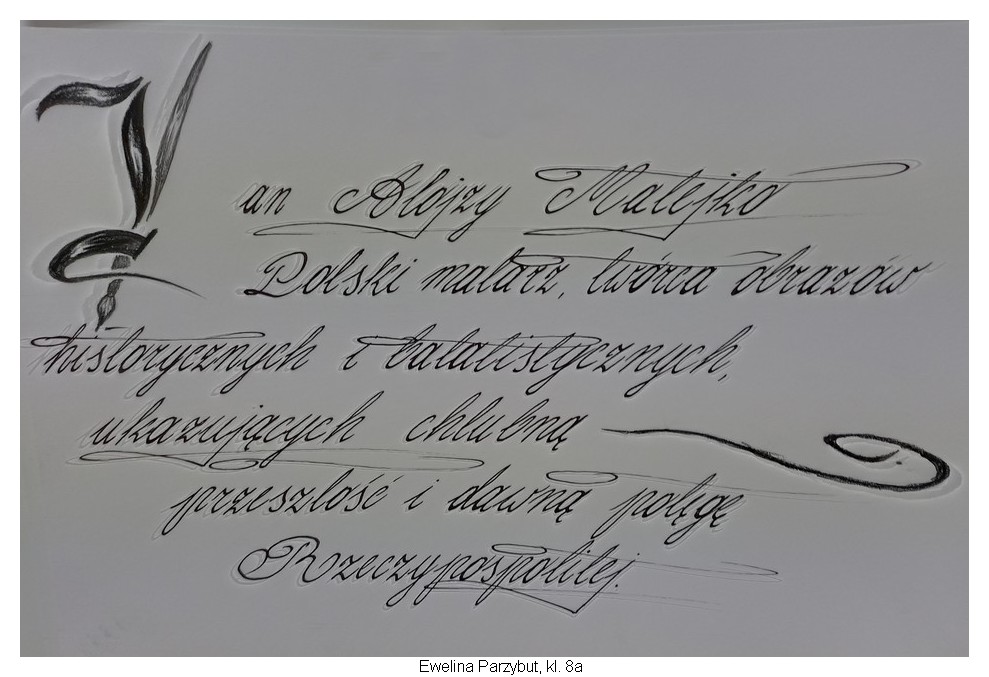 Jan Alojzy Matejko
Polski malarz, twórca obrazów
historycznych i batalistycznych,
ukazujących chlubną
przeszłość i dawną potęgę
Rzeczypospolitej.
Ewelina Parzybut, kl. 8a